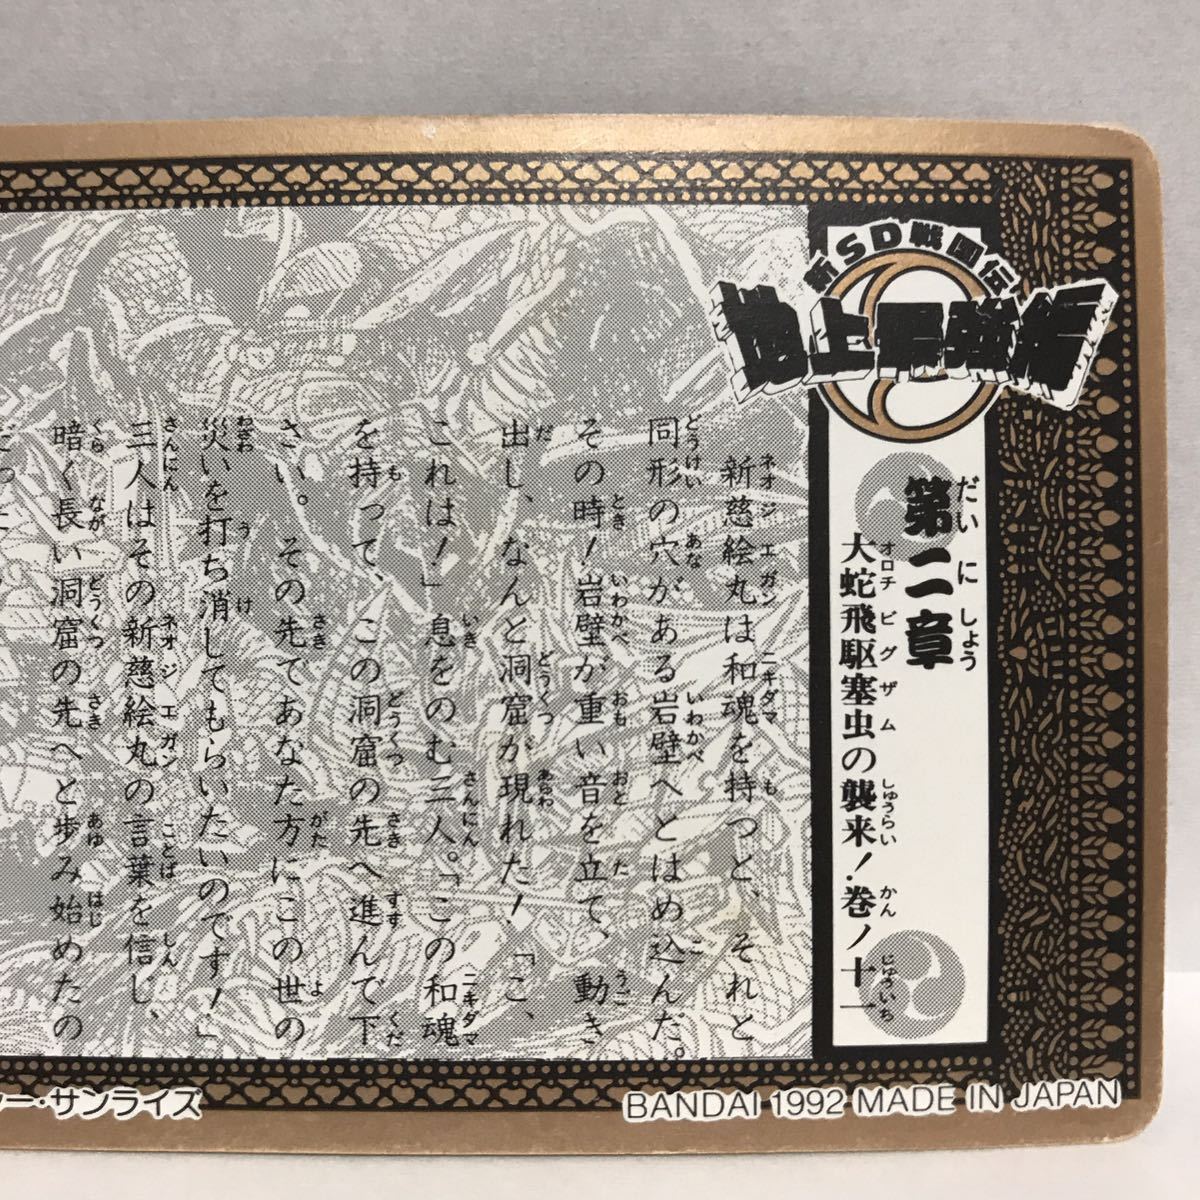 新SD戦国伝
地上最強編
第二章
大蛇飛駆塞虫の襲来!巻ノ十一
新慈絵丸は和魂を持つと、それと
同形の穴がある岩壁へとはめ込んだ。
その時!岩壁が重い音を立て、動き
出し、なんと洞窟が現れた!「こ、
これは!」息をのむ三人。「この和魂
を持って、この洞窟の先へ進んで下
さい。その先であなた方にこの世の
災いを打ち消してもらいたいのです!」
三人はその新慈絵丸の言葉を信じ、
暗く長い洞窟の先へと歩み始めたの
ー・サンライズ
BANDAI 1992 MADE IN JAPAN